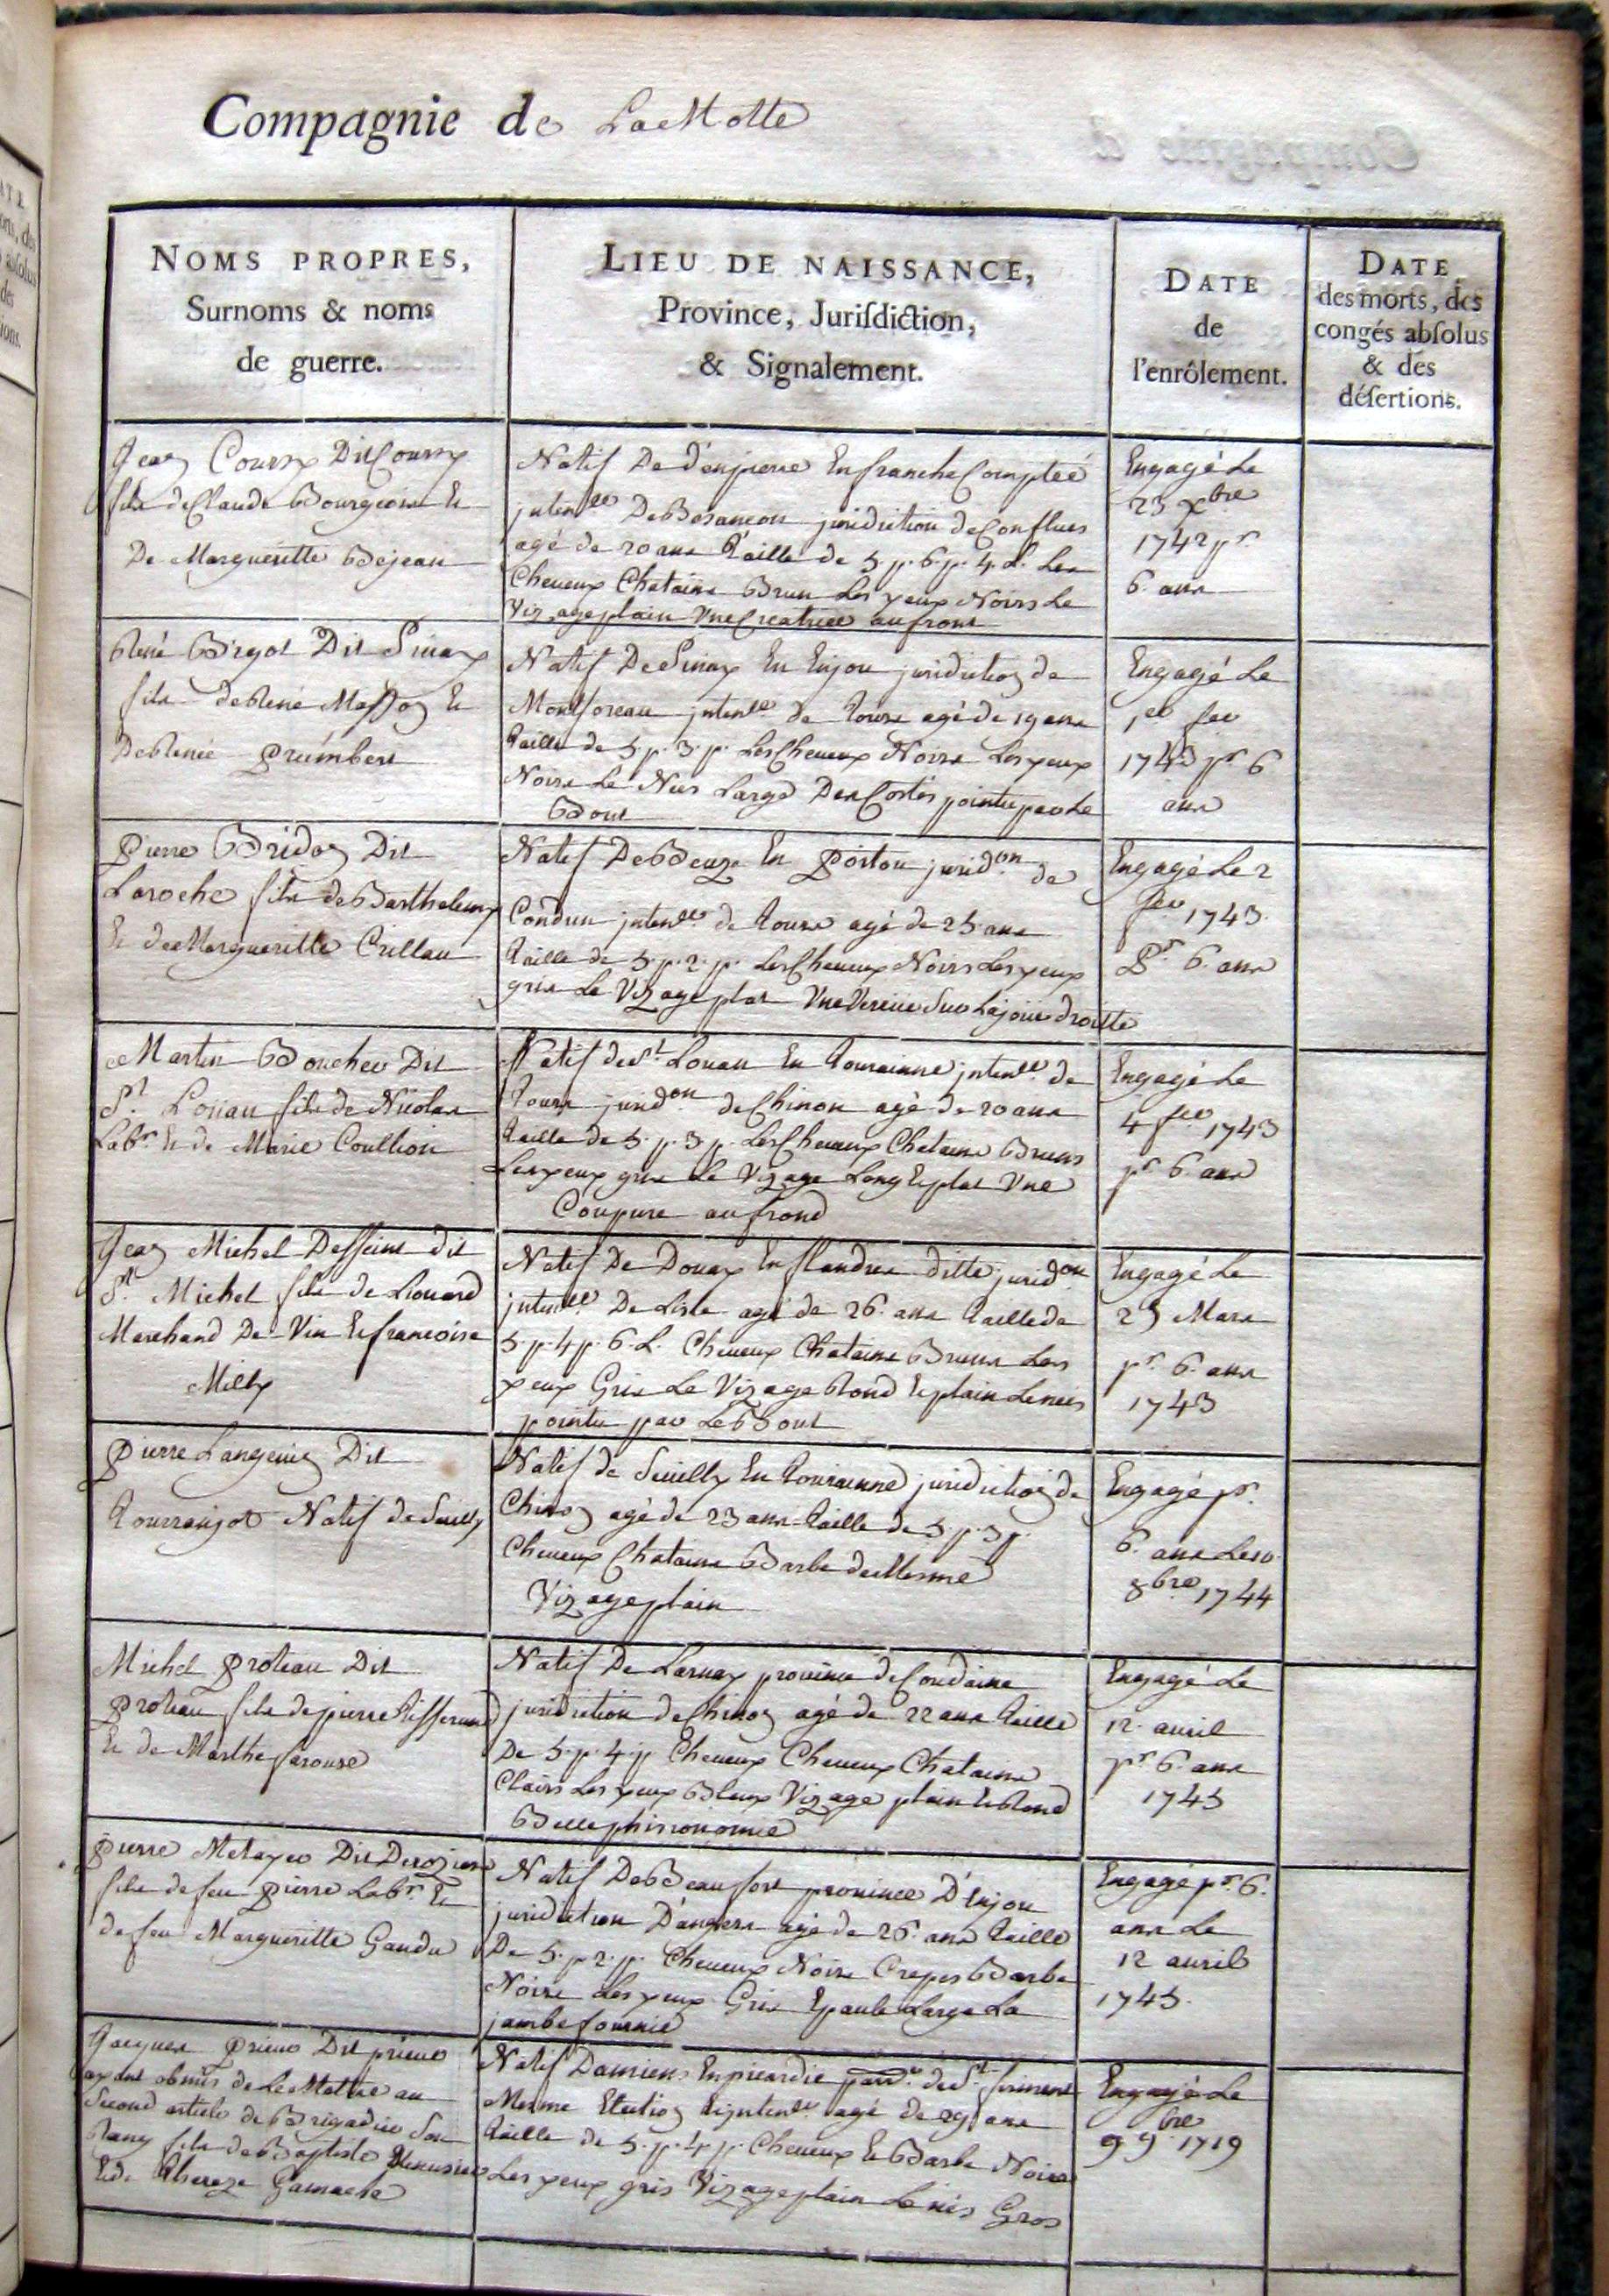 Compagnie de LaMotte
NOMS PROPRES,
Surnoms & noms
de guerre.
LIEU DE NAISSANCE,
Province, Jurisdiction,
& Signalement.
DATE
de
l'enrôlement.
DATE
des morts, des
congés absolus
& des
désertions.
Jean Coursy Dit Coursy
fils de Claude Bourgeois Et
De Margueritte Bejean
Natif De d'enpierre En franche Comptéé
intence De Besancon juridiction de Conflues
agé de 20 ans Taille de 5 p. 6 p. 4 L. Les
Cheueux Chataine Brun Les yeux Noirs Le
Vizage plain Une Creatricee au front
Engagé Le
23 Xbre
1742 pr
6 ans
René Bigot Dit Sinay
fils de René Masson Et
De Renée Prümbert
Natif De Sinay En Enjou juridiction de
Montsoreau intence de Tours agé de 19 ans
Taille de 5 p. 3 p. Les Cheueux Noirs Les yeux
Noirs Le Nees Large Des Costés pointu par Le
Bout
Engagé Le
1er feu
1743 pr 6
ans
Pierre Bridon Dit
Laroche fils de Barthelemy
Et de Margueritte Crillau
Natif De Beuze En Poitou juridon de
Condun intence de Tours agé de 25 ans
Taille de 5 p. 2 p. Les Cheueux Noirs Les yeux
gris Le Vizage plat Une Verüe Sur La joüe droitte
Engagé Le 2
feu 1743
Pr 6 ans
Martin Boucher Dit
St Loüan fils de Nicolas
Labr Et de Marie Coultion
Natif de St Louan En Tourainne intence de
Tours juridon de Chinon agé de 20 ans
Taille de 5 p. 3 p. Les Cheueux Chataine Bruns
Les yeux gris Le Vizage Long Et plat Une
Coupure au frond
Engagé Le
4 feu 1743
pr 6 ans
Jean Michel Desseins dit
St Michel fils de
Marchand De Vin Et francoise
Milly
Natif De Douay En flandres ditte juridon
intence De Lisle agé de 26 ans Taille de
5 p. 4 p. 6 L. Cheueux Chataine Bruns Les
yeux Gris Le Vizage Rond Et plain Le nees
pointu par Le Bout
Engagé Le
25 Mars
pr 6 ans
1743
Pierre Langeuin Dit
Tourranjot Natif de Seuilly
Natif de Seuilly En Tourainne juridiction de
Chinon agé de 23 ans Taille de 5 p. 3 p.
Cheueux Chataine Barbe de Mesme
Vizage plain
Engagé pr
6 ans Le 10
8bre 1744
Michel Proteau Dit
Proteau fils de pierre
Et de Marthe farouse
Natif De Larnay prouince de Coudaine
juridiction de Chinon agé de 22 ans Taille
De 5 p. 4 p Cheueux Cheueux Chataine
Clairs Les yeux Bleux Vizage plain Et Rond
Belle phisionomie
Engagé Le
12 auril
pr 6 ans
1745
Pierre Metayer Dit Deroziers
fils de feu Pierre Labr Et
de feu Margueritte Gaudu
Natif De Beaufort prouince D'Enjou
juridiction D'angers agé de 26 ans Taille
De 5 p. 2 p. Cheueux Noirs Crepes Barbe
Noire Les yeux Gris Epaule Large La
jambe fournie
Engagé pr 6
ans Le
12 auril
1745
Jacques Prieur Dit prieur
ayant obmis de Le Mettre au
Second article de Brigadier Son
Rang fils de Baptiste Menusier
Et de Thereze Gamache
Natif Damiens En picardie parr de St firmins
Mesme Election Et intence agé de 29 ans
Taille de 5 p. 4 p. Cheueux Et Barbe Noirs
Les yeux gris Vizage plain Le nés Gros
Engagé Le
9 9bre 1719